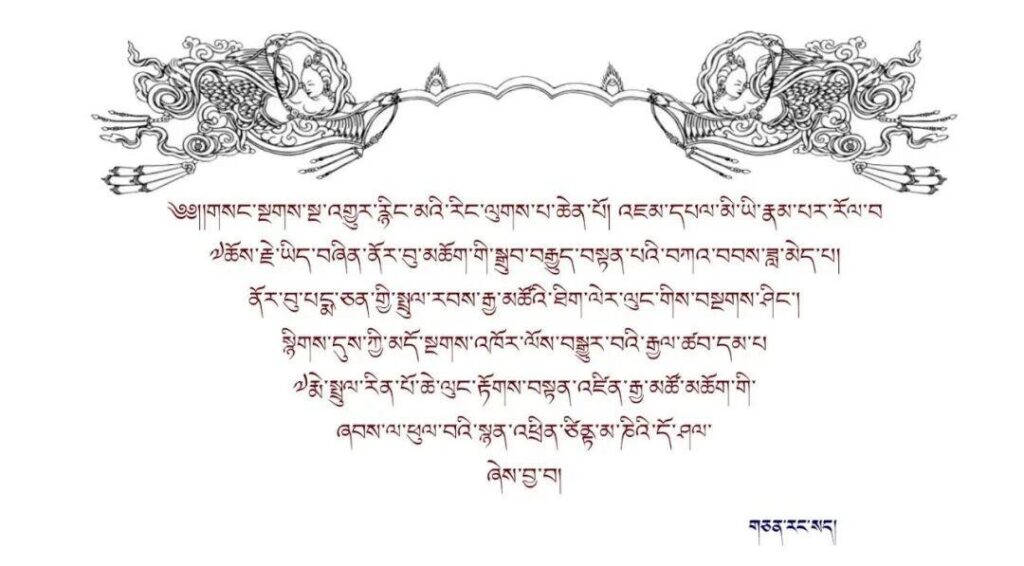 ༄༅།།གསང་སྔགས་སྔ་འགྱུར་རྙིང་མའི་རིང་ལུགས་པ་ཆེན་པོ། འཇམ་དཔལ་མི་ཡི་རྣམ་པར་རོལ་བ
༧ཆོས་རྗེ་ཡིད་བཞིན་ནོར་བུ་མཆོག་གི་སྒྲུབ་བརྒྱུད་བསྟན་པའི་བཀའ་བབས་ཟླ་མེད་པ།
ནོར་བུ་པདྨ་ཅན་གྱི་སྤྲུལ་རབས་རྒྱ་མཚོའི་ཐིག་ལེར་ལུང་གིས་བསྔགས་ཤིང་།
སྙིགས་དུས་ཀྱི་མདོ་སྔགས་འཁོར་ལོས་བསྒྱུར་བའི་རྒྱལ་ཚབ་དམ་པ
༧རྨེ་སྤྲུལ་རིན་པོ་ཆེ་ལུང་རྟོགས་བསྟན་འཛིན་རྒྱ་མཚོ་མཆོག་གི་
ཞབས་ལ་ཕུལ་བའི་སྙན་འཕྲིན་ཙིནྟ་མ་ཎིའི་དོ་ཤལ་
ཞེས་བྱ་བ།
གཅན་རང་སད།